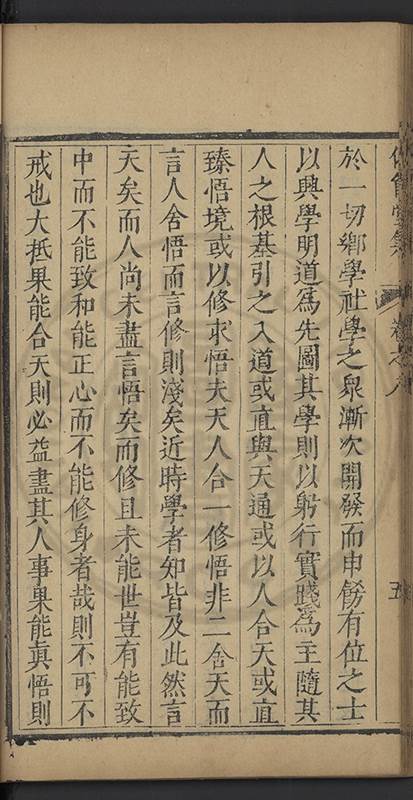 於一切鄉學社學之衆漸次開發而申飭有位之士
以興學明道爲先圖其學則以躬行實踐爲主隨其
人之根基引之入道或直與天通或以人合天或直
臻悟境或以修求悟夫天人合一修悟非二舍天而
言人舍悟而言修則淺矣近時學者知皆及此然言
天矣而人尚未盡言悟矣而修且未能世豈有能致
中而不能致和能正心而不能修身者哉則不可不
戒也大抵果能合天則必益盡其人事果能眞悟則